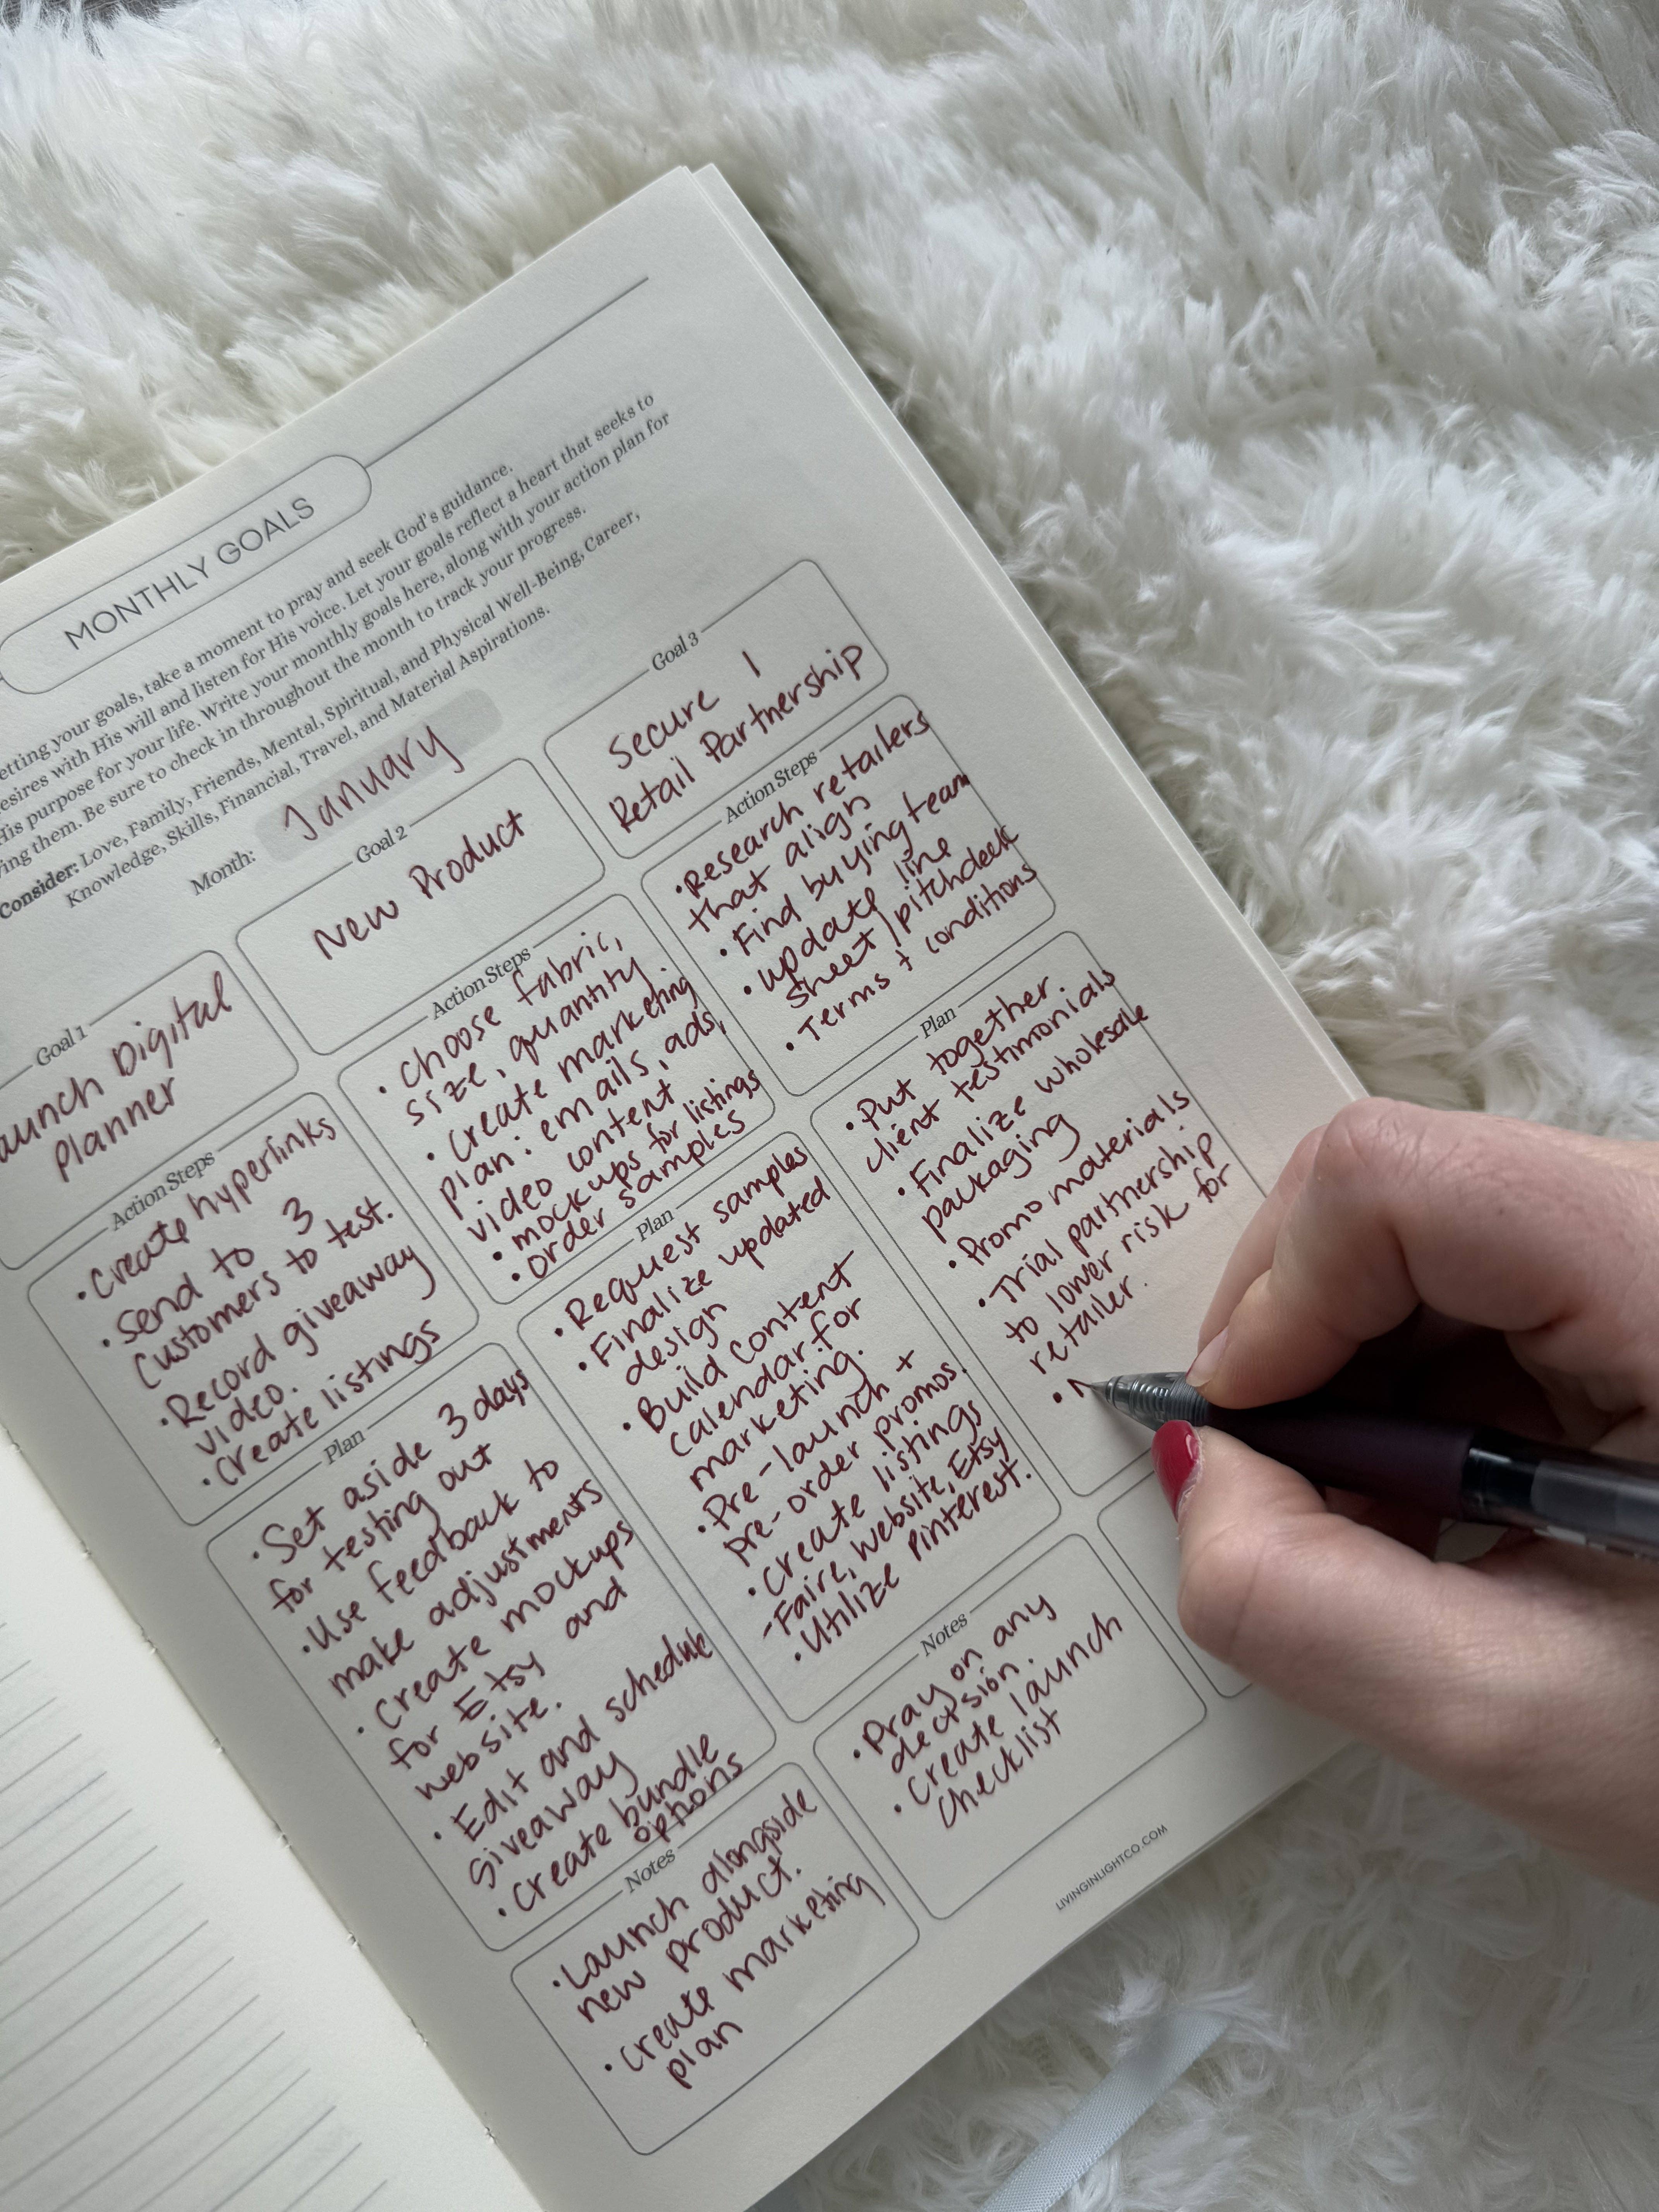 MONTHLY GOALS
etting your goals, take a moment to pray and seek God's guidance.
esires with His will and listen for His voice. Let your goals reflect a heart that seeks to
His purpose for your life. Write your monthly goals here, along with your action plan for
ving them. Be sure to check in throughout the month to track your progress.
Consider: Love, Family, Friends, Mental, Spiritual, and Physical Well-Being, Career,
Knowledge, Skills, Financial, Travel, and Material Aspirations.
Month: January
Goal 1
aunch Digital
Planner
Action Steps
• Create hyperlinks
• Send to 3
customers to test.
• Record giveaway
video.
• Create listings
Plan
• Set aside 3 days
for testing out
• Use feedback to
make adjustments
• Create mockups
for Etsy and
website.
• Edit and schedule
giveaway
• Create bundle
options
Notes
• Launch alongside
new product.
• Create marketing
plan
Goal 2
New Product
Action Steps
• Choose fabric,
size, quantity
• Create marketing
plan: emails, ads,
video content
• mockups for listings
• Order samples
Plan
• Request samples
• Finalize updated
design
• Build content
calendar for
marketing.
• Pre-launch +
pre-order promos.
• Create listings
- Faire, website, Etsy
• Utilize Pinterest.
Notes
• Pray on any
decision.
• Create launch
checklist
Goal 3
Secure 1
Retail Partnership
Action Steps
• Research retailers
that align
• Find buying team
• update line
sheet/pitchdeck
• Terms + conditions
Plan
• Put together
client testimonials
• Finalize wholesale
packaging
• Promo materials
• Trial partnership
to lower risk for
retailer.
•
LIVINGINLIGHTCO.COM